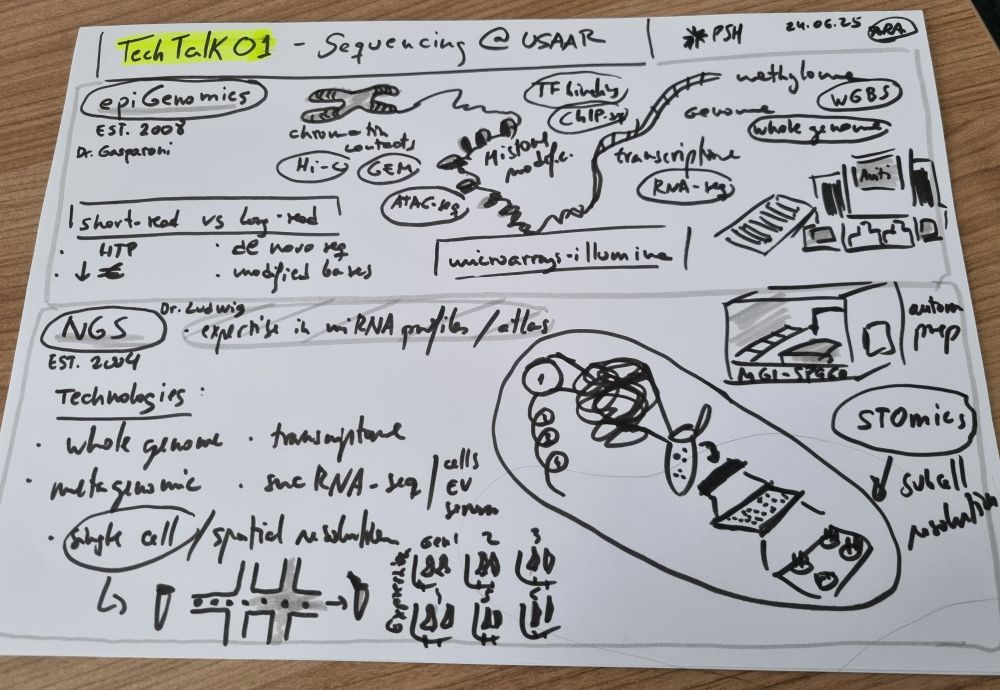 TechTalk 01 - Sequencing @ USAAR
PSH
24.06.25
epiGenomics
EST. 2008
Dr. Gasparoni
chromatin
contacts
Hi-C
GEM
ATAC-seq
Histone
modific.
TF binding
ChIP-seq
methylome
WGBS
genome
whole genome
transcriptome
RNA-seq
short-read vs long-read
· HTP
· de novo seq
· ↓ €
· modified bases
microarrays-illumina
NGS
EST. 2004
Dr. Ludwig
· expertise in miRNA profiles / atlas
Technologies:
· whole genome
· transcriptome
· metagenomic
· sncRNA-seq
cells
EV
serum
· single cell / spatial resolution
Gen1 2 3
expression
MGI-SP960
autom
prep
STOmics
subcell
resolution